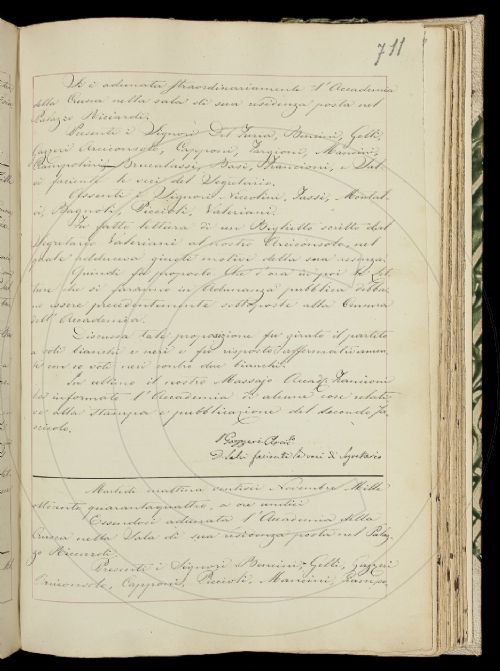 711
Si è adunata straordinariamente l'Accademia
della Crusca nella sala di sua residenza posta nel
Palazzo Riccardi.
Presenti i Signori Del Furia, Bencini, Gelli,
Gazzeri Arciconsolo, Capponi, Targioni, Mancini,
Rampoldi, Brucalassi, Basi, Francioni, e Sal-
vi facienti le veci del Segretario.
Assenti i Signori Niccolini, Tassi, Montal-
vi, Bagnoli, Piccioli, Valeriani.
Fu fatto lettura di un Biglietto scritto dal
Segretario Valeriani al nostro Arciconsolo, nel
quale adduceva giusti motivi della sua assenza.
Quindi fu proposto che d'ora in poi le Let-
ture che si faranno in Adunanza pubblica debba-
no essere precedentemente sottoposte alla Censura
dell'Accademia.
Discussa tale proposizione fu girato il partito
a voti bianchi e neri e fu risposto affermativamen-
te con voti neri contro due bianchi.
In ultimo il nostro Massajo Accad. Francioni
ha informato l'Accademia di alcune cose relati-
ve alla stampa e pubblicazione del secondo Fa-
scicolo.
G. Gazzeri Arcic.lo
D. Salvi facienti le veci di Segretario
Martedì mattina ventisei Novembre Mille
ottocento quarantaquattro, a ore undici
Essendosi adunata l'Accademia della
Crusca nella Sala di sua residenza posta nel Palaz-
zo Riccardi.
Presenti i Signori Bencini, Gelli, Gazzeri
Arciconsolo, Capponi, Piccioli, Mancini,